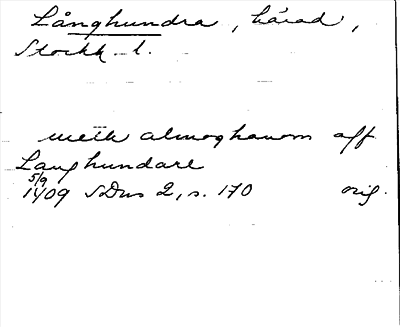 Långhundra, härad,
Stockh. l.
meth almoghanom aff
Langhundare
5/9
1409 SDns 2, s. 170 orig.